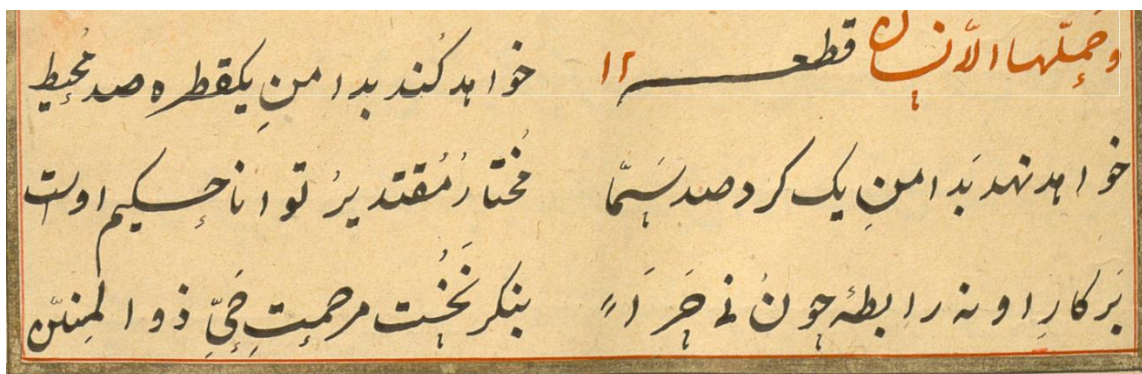 وحملها الانسان قطعه خواهد کُند بدامنِ یکقطره صد مُحیط
خواهد نهد بَدامنِ یک کرد صد سَمّا مُختارُ مُقتدیرُ توانا حکیم اوست
بَرکارِ او نه رابطهٔ چونُ نی چَرَاء بنکر نَخُست مرحمتِ حَیِّ ذوالمِننّ